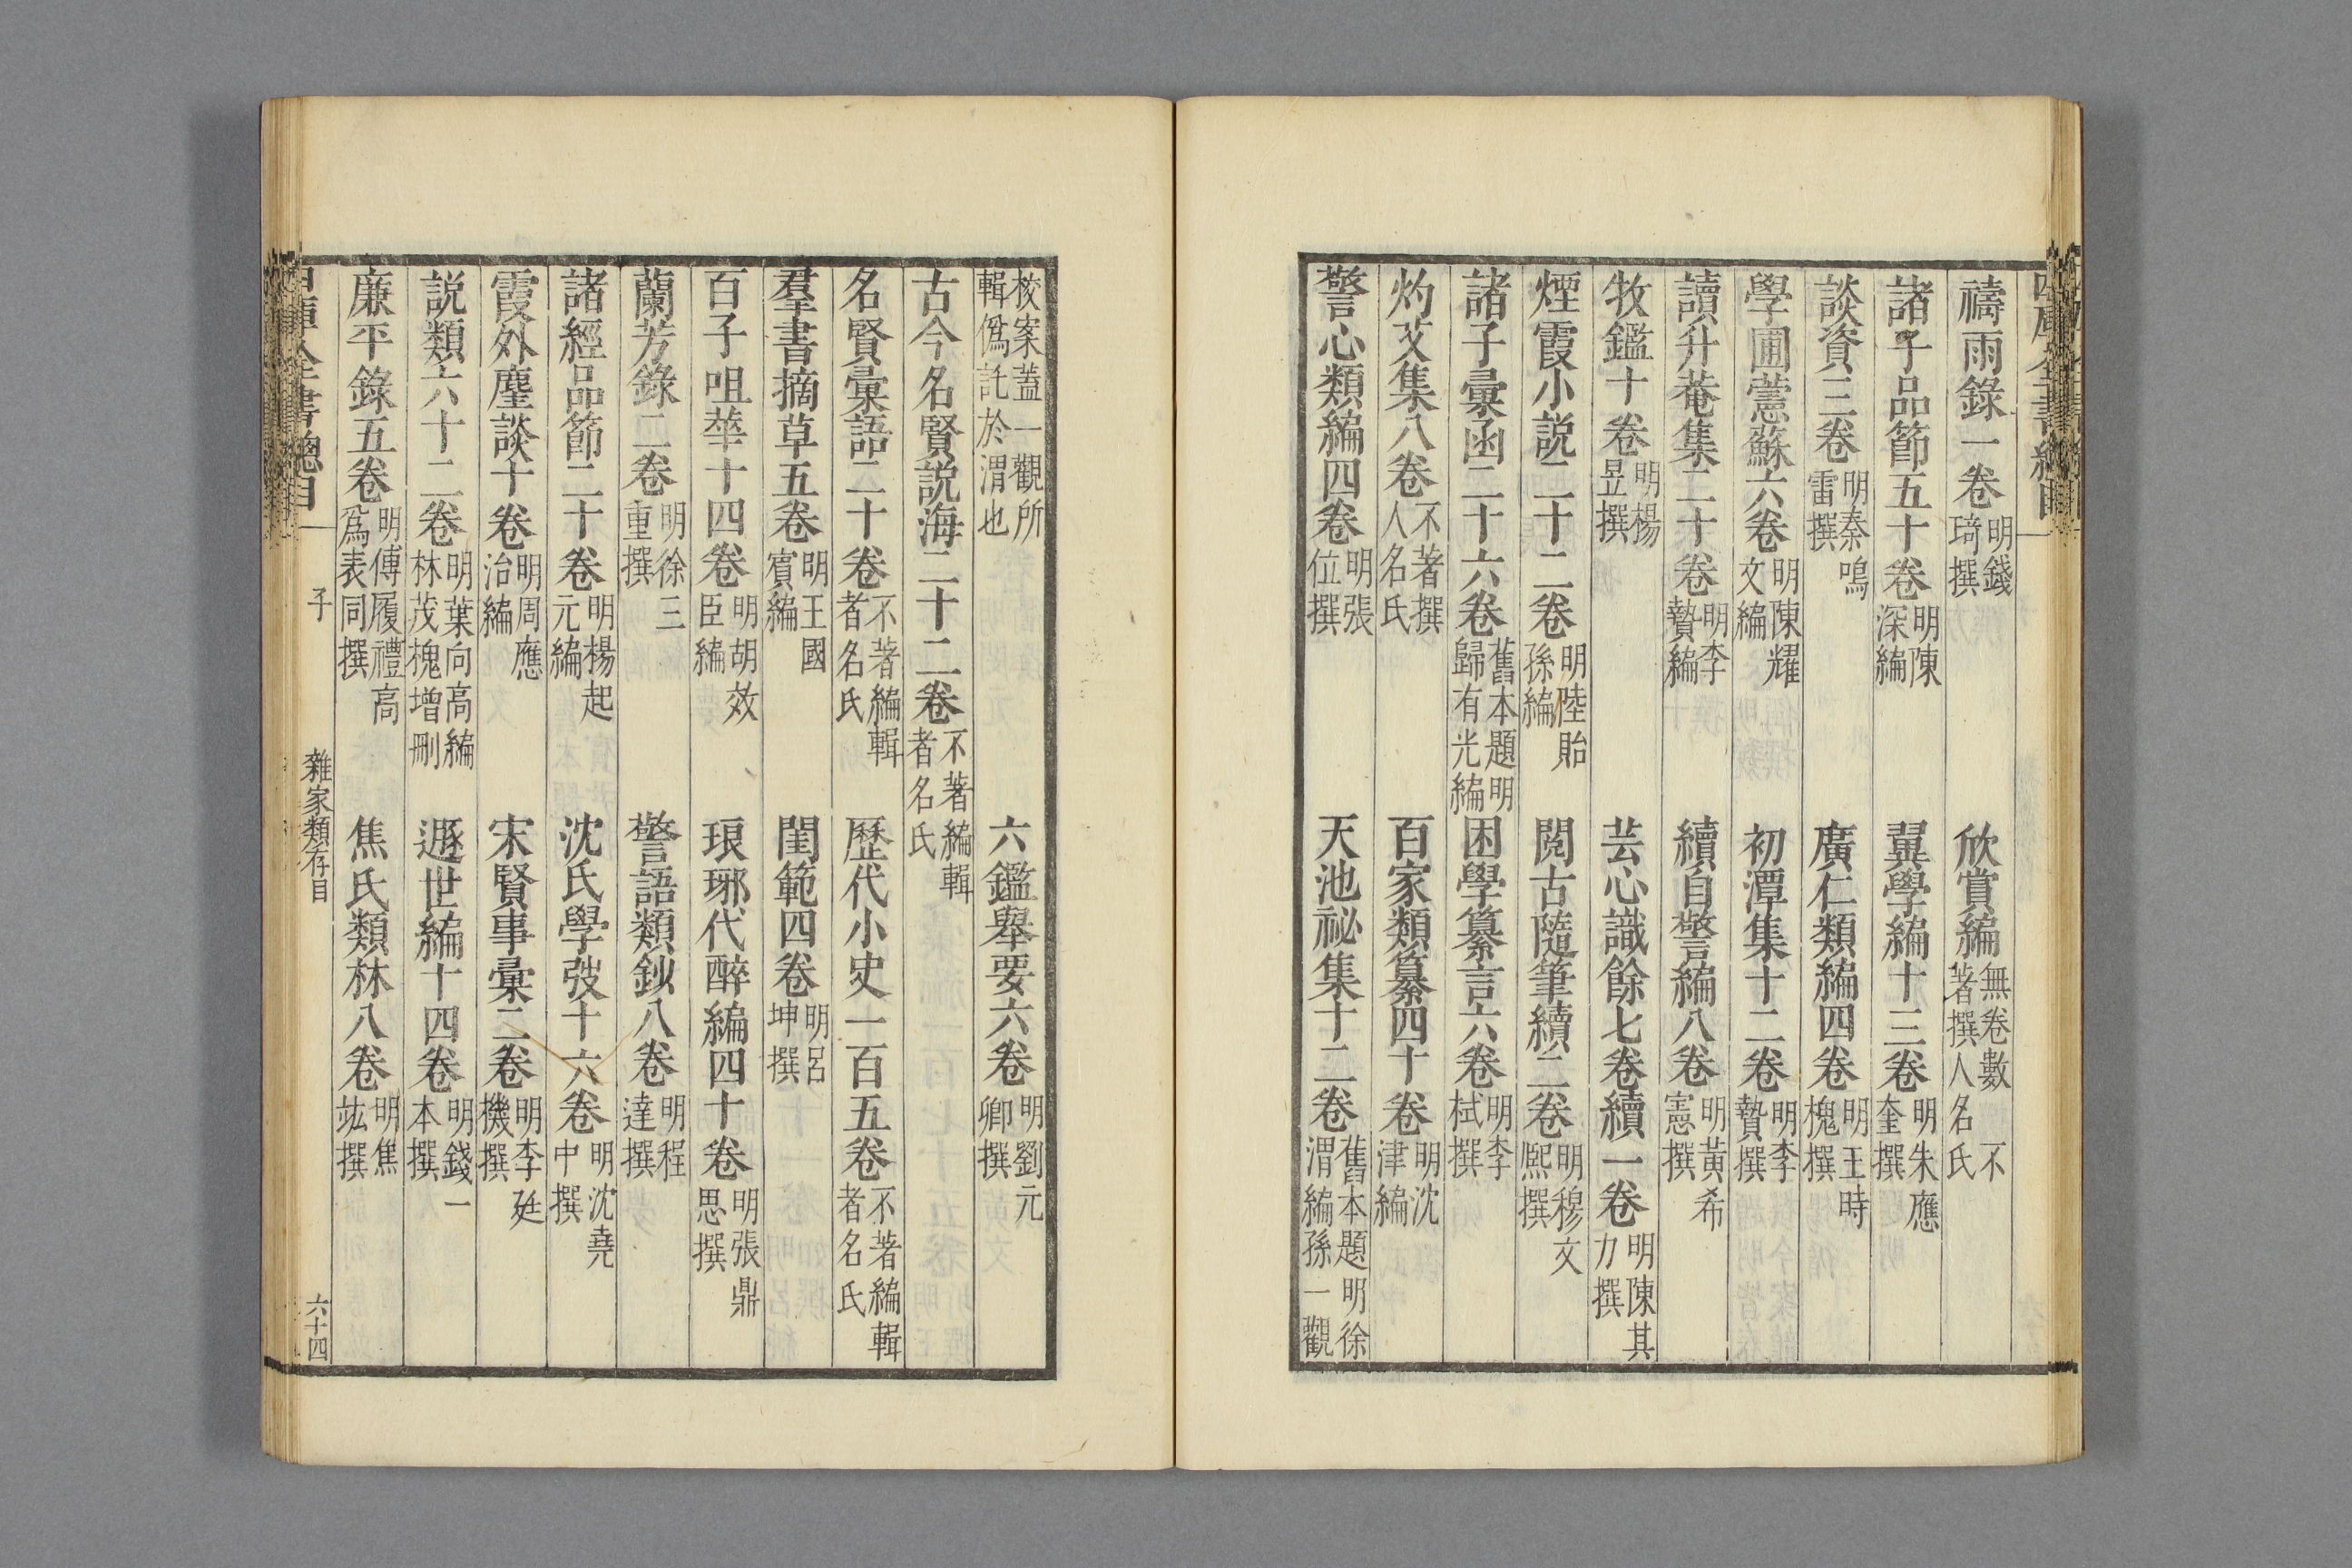 禱雨錄一卷 明錢琦撰 欣賞編 無卷數不著撰人名氏
諸子品節五十卷 明陳深編 翼學編十三卷 明朱應奎撰
談資三卷 明秦鳴雷撰 廣仁類編四卷 明王時槐撰
學圃蕙蘇六卷 明陳耀文編 初潭集十二卷 明李贄撰
讀升菴集二十卷 明李贄編 續自警編八卷 明黃希憲撰
牧鑑十卷 明楊昱撰 芸心識餘七卷續一卷 明陳其力撰
煙霞小説二十二卷 明陸貽孫編 閲古隨筆續二卷 明穆文熙撰
諸子彙函二十六卷 舊本題明歸有光編 困學纂言六卷 明李栻撰
灼艾集八卷 不著撰人名氏 百家類纂四十卷 明沈津編
警心類編四卷 明張位撰 天池祕集十二卷 舊本題明徐渭編孫一觀
校案蓋一觀所輯僞託於渭也 六鑑舉要六卷 明劉元卿撰
古今名賢説海二十二卷 不著編輯者名氏
名賢彙語二十卷 不著編輯者名氏 歷代小史一百五卷 不著編輯者名氏
羣書摘草五卷 明王國賓編 閨範四卷 明呂坤撰
百子咀華十四卷 明胡效臣編 琅琊代醉編四十卷 明張鼎思撰
蘭芳錄二卷 明徐三重撰 警語類鈔八卷 明程達撰
諸經品節二十卷 明楊起元編 沈氏學弢十六卷 明沈堯中撰
霞外麈談十卷 明周應治編 宋賢事彙二卷 明李廷機撰
説類六十二卷 明葉向高編林茂槐增刪 遯世編十四卷 明錢一本撰
廉平錄五卷 明傅履禮高爲表同撰 焦氏類林八卷 明焦竑撰
四庫全書總目 子 雜家類存目 六十四